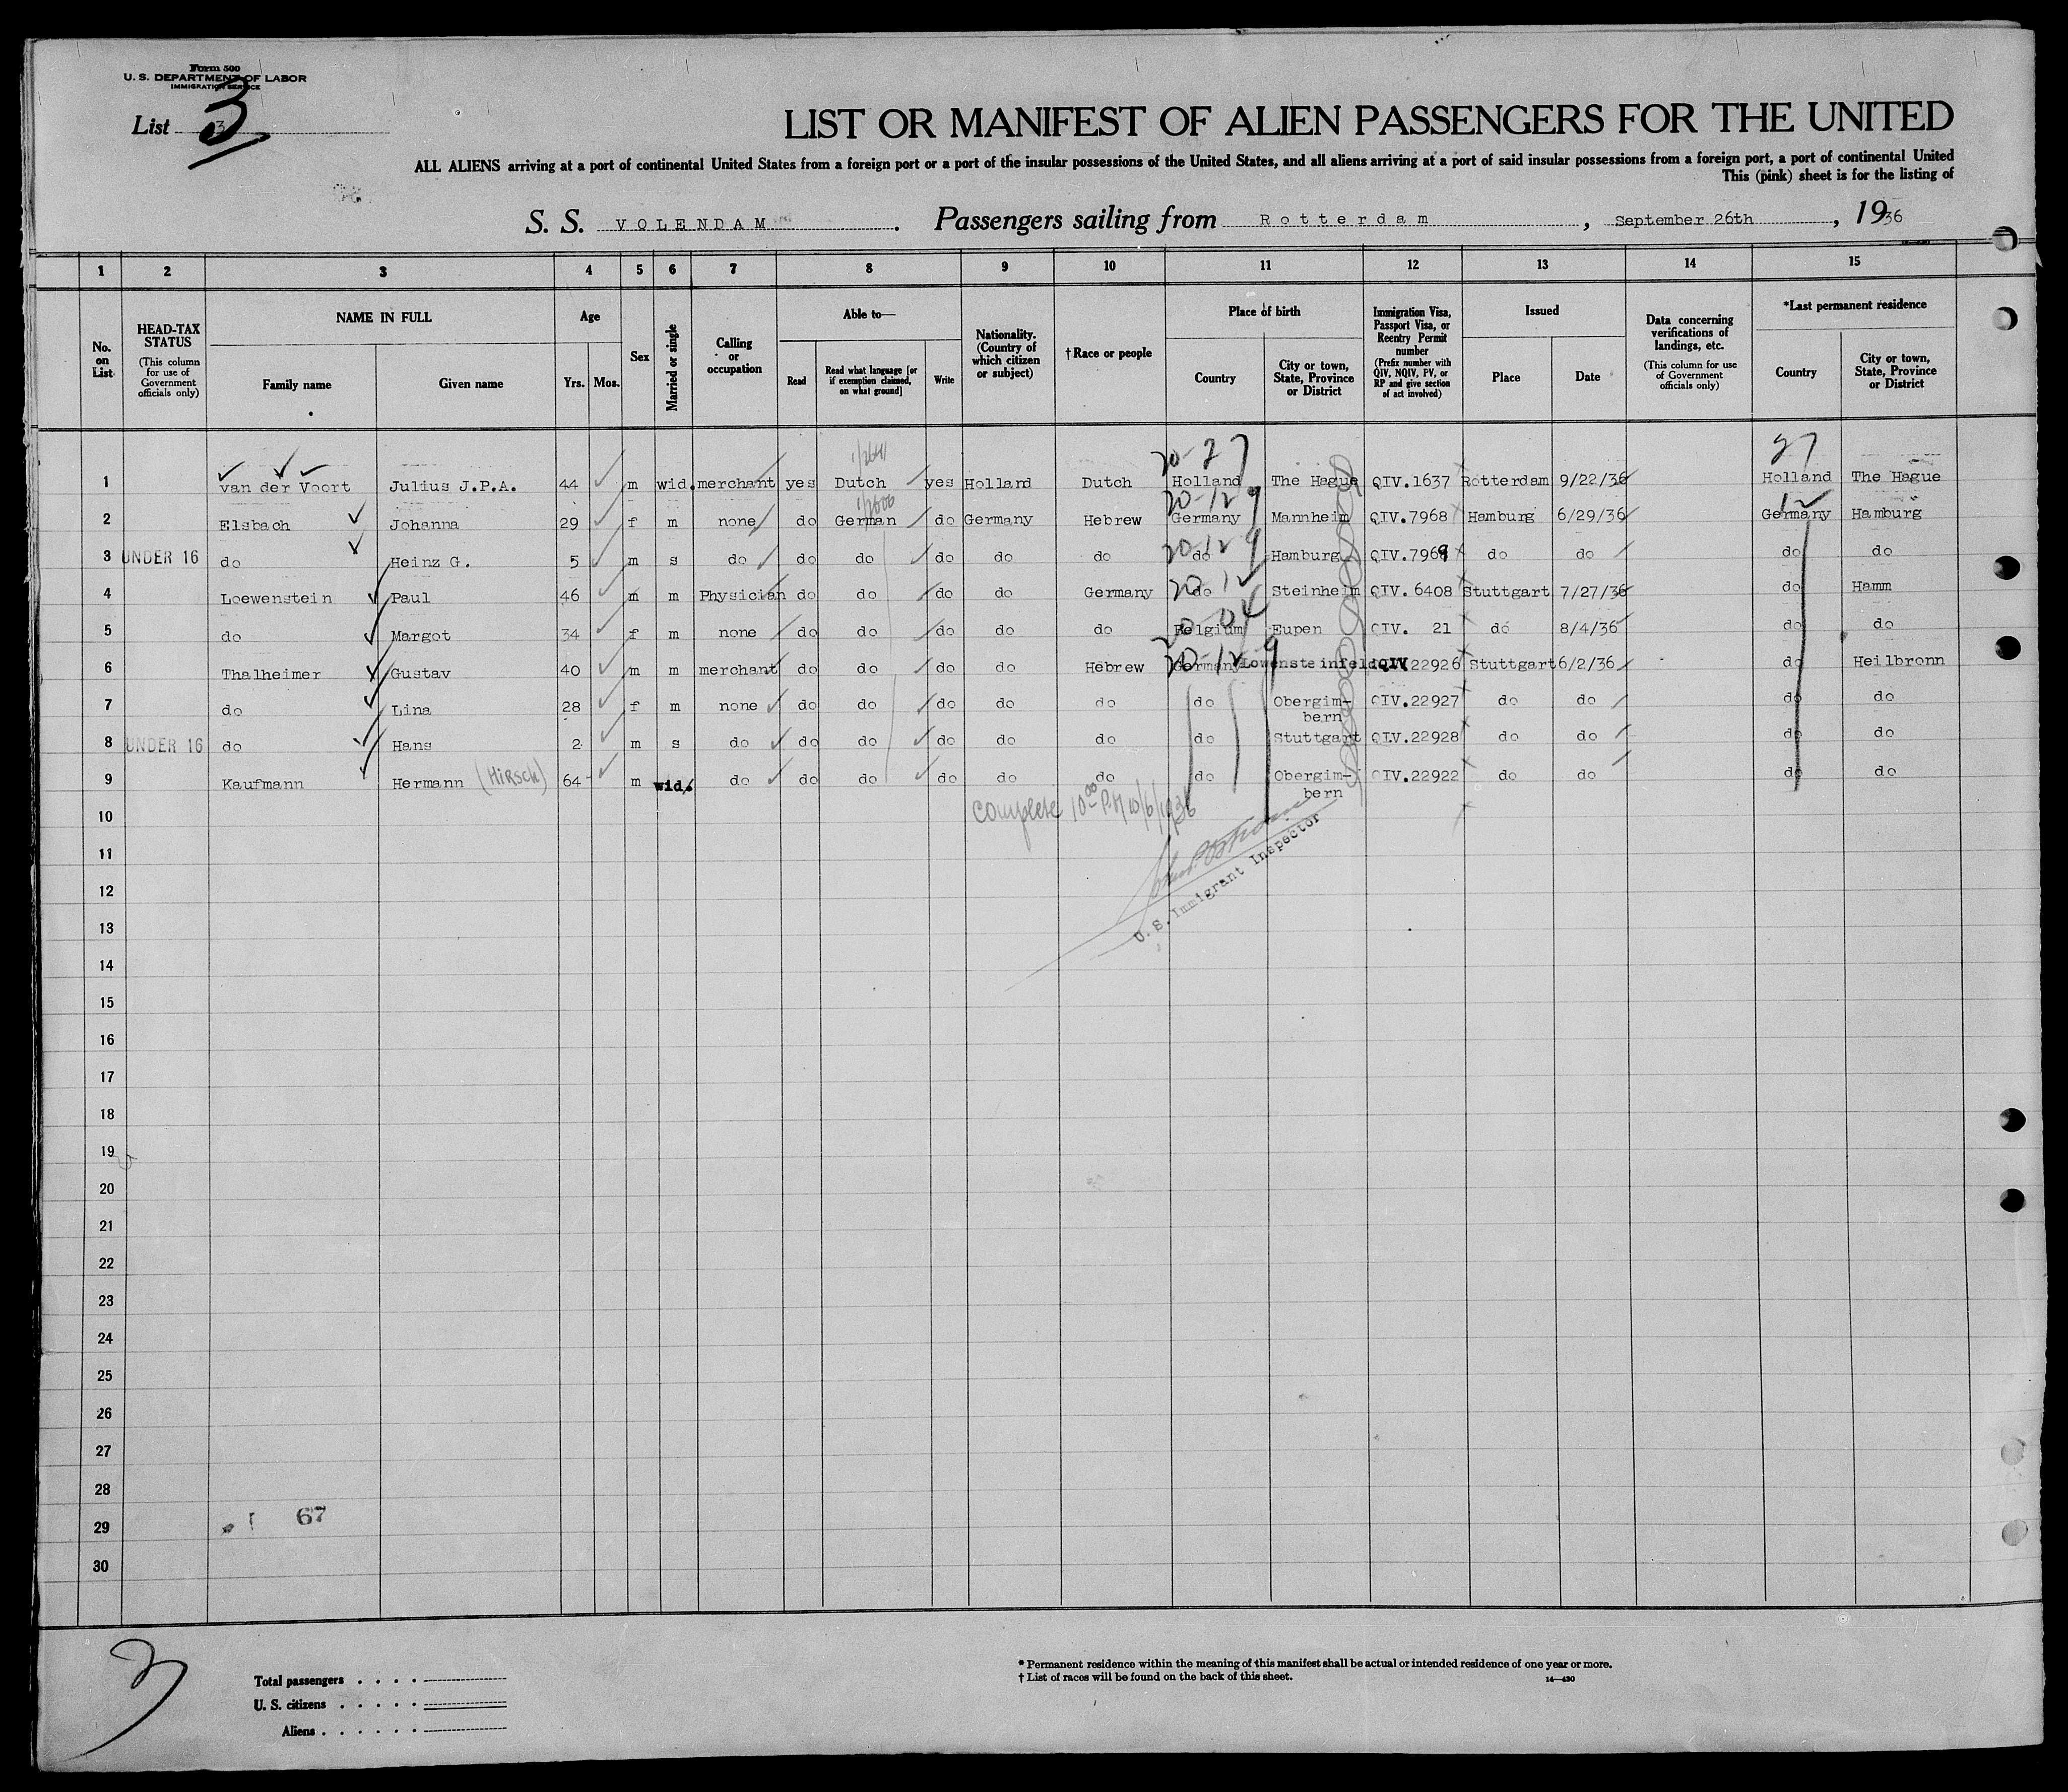 Form 500
U. S. DEPARTMENT OF LABOR
IMMIGRATION SERVICE
List 3
3
LIST OR MANIFEST OF ALIEN PASSENGERS FOR THE UNITED
ALL ALIENS arriving at a port of continental United States from a foreign port or a port of the insular possessions of the United States, and all aliens arriving at a port of said insular possessions from a foreign port, a port of continental United
This (pink) sheet is for the listing of
S. S. VOLENDAM . Passengers sailing from Rotterdam , September 26th , 1936
1 2 3 4 5 6 7 8 9 10 11 12 13 14 15
No. on List
HEAD-TAX STATUS (This column for use of Government officials only)
NAME IN FULL
Family name Given name
Age
Yrs. Mos.
Sex
Married or single
Calling or occupation
Able to—
Read Read what language [or if exemption claimed, on what ground] Write
Nationality. (Country of which citizen or subject)
†Race or people
Place of birth
Country City or town, State, Province or District
Immigration Visa, Passport Visa, or Reentry Permit number (Prefix number with QIV, NQIV, PV, or RP and give section of act involved)
Issued
Place Date
Data concerning verifications of landings, etc. (This column for use of Government officials only)
*Last permanent residence
Country City or town, State, Province or District
20-27 27
1 van der Voort Julius J.P.A. 44 m wid. merchant yes Dutch yes Holland Dutch Holland The Hague QIV.1637 Rotterdam 9/22/36 Holland The Hague
20-12 9 12
2 Elsbach Johanna 29 f m none do German do Germany Hebrew Germany Mannheim QIV.7968 Hamburg 6/29/36 Germany Hamburg
20-12 9
3 UNDER 16 do Heinz G. 5 m s do do do do do do do Hamburg QIV.7969 do do do do
20-12
4 Loewenstein Paul 46 m m Physician do do do do Germany do Steinheim QIV.6408 Stuttgart 7/27/36 do Hamm
20-04
5 do Margot 34 f m none do do do do do Belgium Eupen QIV. 21 do 8/4/36 do do
20-12 9
6 Thalheimer Gustav 40 m m merchant do do do do Hebrew Germany Lowensteinfeld QIV 22926 Stuttgart 6/2/36 do Heilbronn
7 do Lina 28 f m none do do do do do do Obergim-bern QIV.22927 do do do do
8 UNDER 16 do Hans 2 m s do do do do do do do Stuttgart QIV.22928 do do do do
9 Kaufmann Hermann (Hirsch) 64 m wid. do do do do do do do Obergim-bern QIV.22922 do do do do
10
Complete 10 00 P.M 10/6/1936
11
12
U. S. Immigrant Inspector
13
14
15
16
17
18
19
20
21
22
23
24
25
26
27
28
29 67
30
3
Total passengers
U. S. citizens
Aliens
* Permanent residence within the meaning of this manifest shall be actual or intended residence of one year or more.
† List of races will be found on the back of this sheet.
14—430